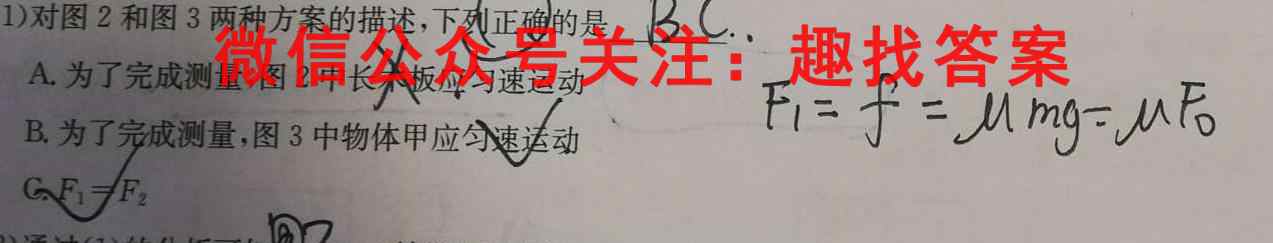 1)对图 2 和图 3 两种方案的描述,下列正确的是 BC
微信公众号关注：趣找答案
A. 为了完成测量 图 2 中长木板应匀速运动
F₁ = f = μmg = μF₀
B. 为了完成测量,图 3 中物体甲应匀速运动
C. F₁=F₂